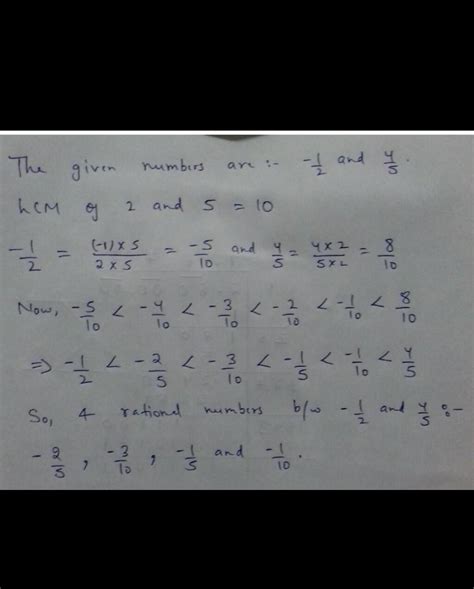 The given numbers are :- -1/2 and 4/5.
LCM of 2 and 5 = 10
-1/2 = (-1)×5/2×5 = -5/10 and 4/5 = 4×2/5×2 = 8/10
Now, -5/10 < -4/10 < -3/10 < -2/10 < -1/10 < 8/10
⇒ -1/2 < -2/5 < -3/10 < -1/5 < -1/10 < 4/5
So, 4 rational numbers b/w -1/2 and 4/5 :-
-2/5, -3/10, -1/5 and -1/10.